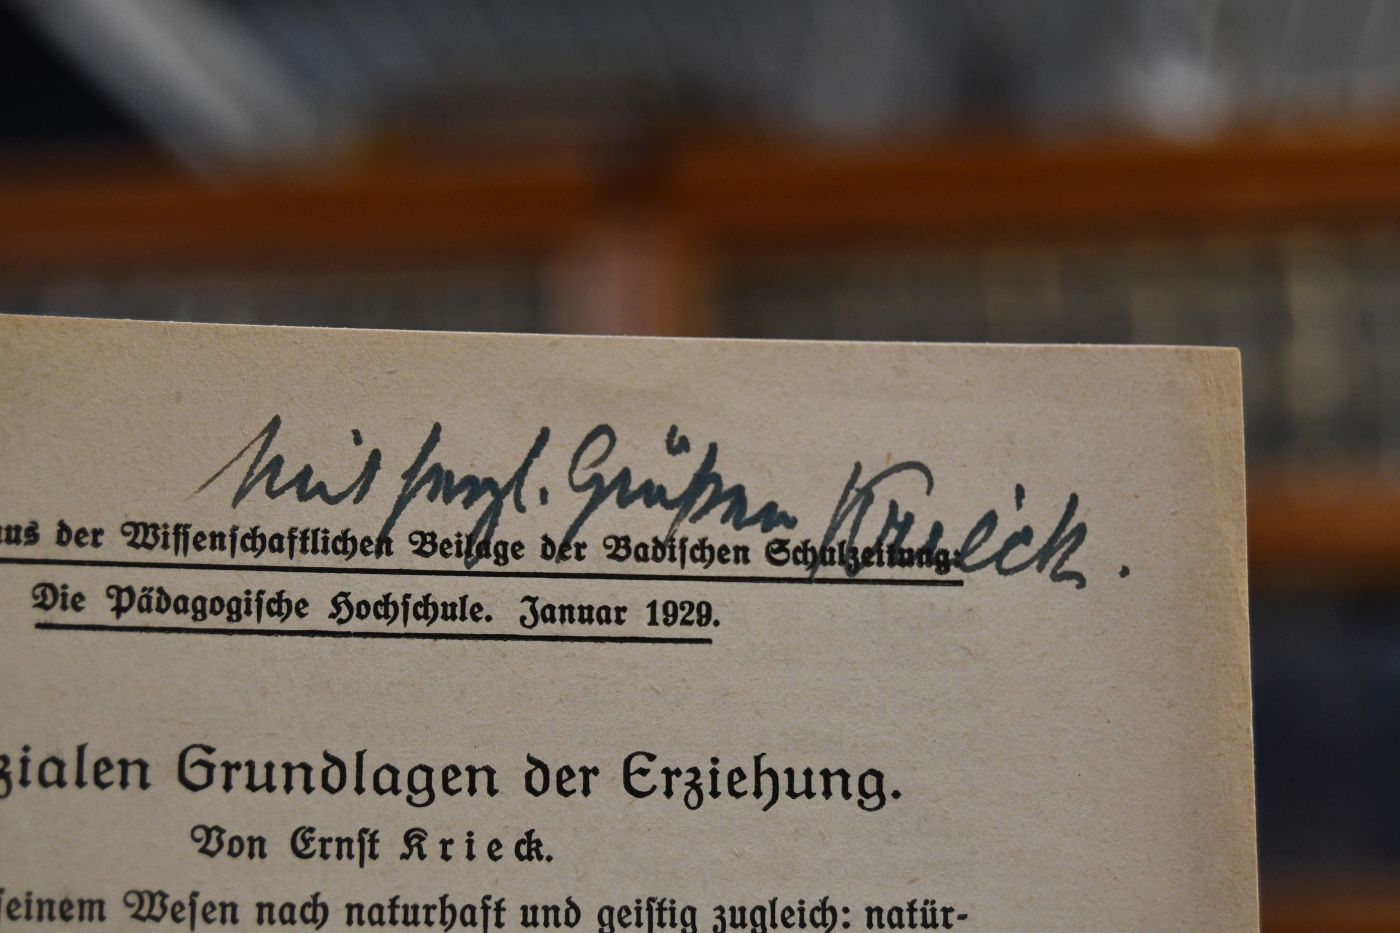 Mit herzl. Grüßen Krieck.
aus der Wissenschaftlichen Beilage der Badischen Schulzeitung:
Die Pädagogische Hochschule. Januar 1929.
zialen Grundlagen der Erziehung.
Von Ernst Krieck.
seinem Wesen nach naturhaft und geistig zugleich: natür-